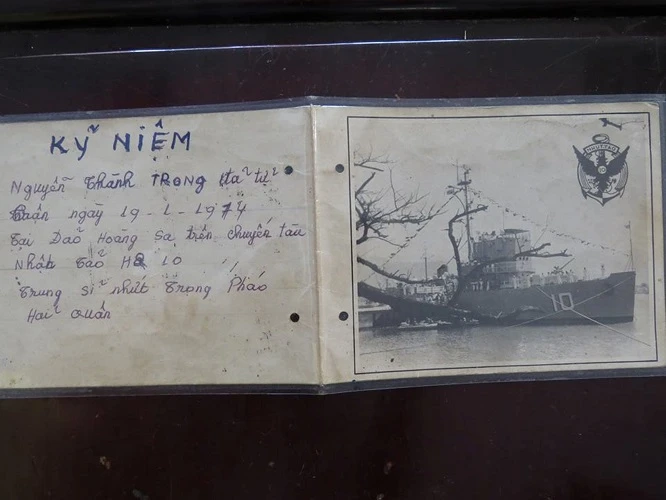 KỶ NIỆM
Nguyễn Thành TRỌNG Đã tử
Trận ngày 19-1-1974
Tại Đảo Hoàng Sa trên chuyến tàu
Nhật Tảo HQ 10 "
Trung sĩ nhứt Trọng Pháo
Hải Quân
NHỰT TẢO
10